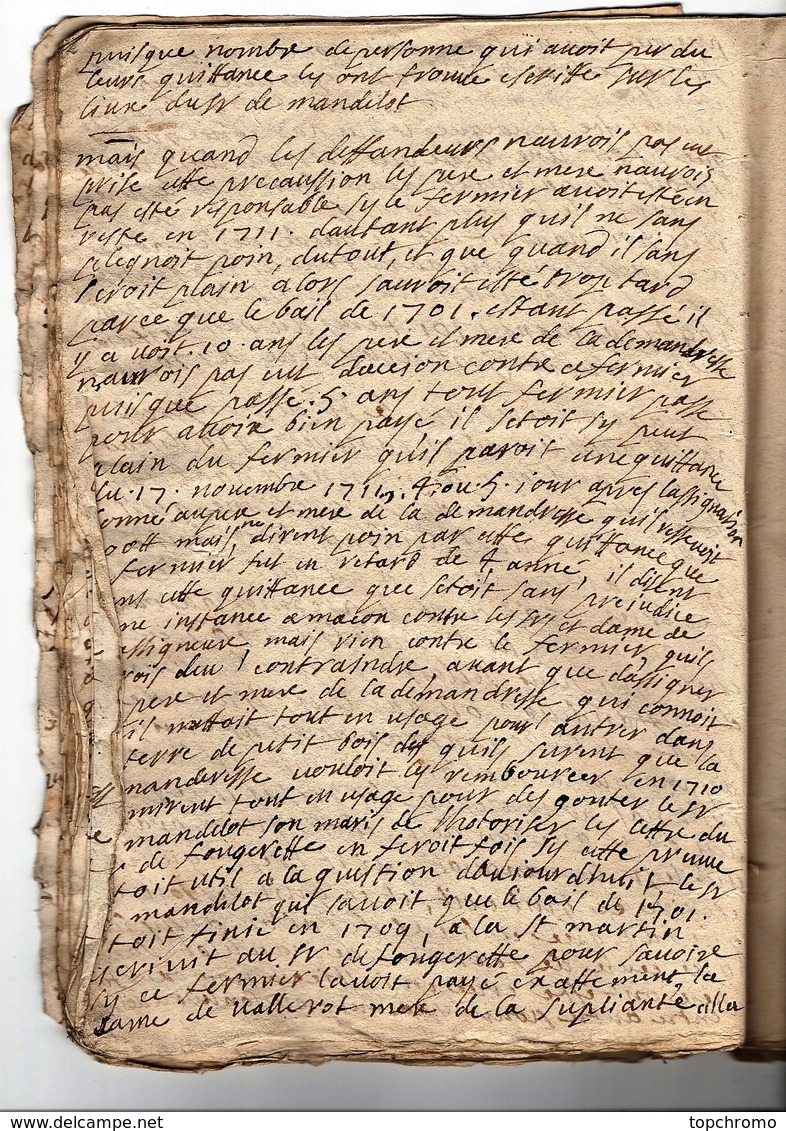 puisque nombre de personne qui avoit perdu
leurs quittance les ont trouvé escritte sur les
livre du sr de mandelot
mais quand les deffandeurs naurois pas
prise cette precaussion les pere et mere nauroit
pas esté responsable sy le fermier avoit esté en
reste en 1711. dautant plus quil ne sans
pleignoit poin, dutout, et que quand il sans
seroit plain alors sauroit esté trop tard
parce que le bail de 1701. estant passé il
y avoit. 10. ans les pere et mere de la demandresse
naurois pas eut daccion contre ce fermier
puisque passé. 5. ans tout fermier passe
pour avoir bien payé il setoit sy peut
plain du fermier quil paroit une quittance
du. 17. novembre 1711. 4. ou 5. jour apres lassignasion
donné au pere et mere de la demandresse quil ressevoit
mais ne dirent poin par cette quittance que
fermier fut en retard de 4. anné, il disent
cette quittance que setoit sans prejudice
instance a macon contre les srs et dame de
mais rien contre le fermier quils
deu contraindre avant que dassigner
pere et mere de la demandresse qui connoit
il mettoit tout en usage pour entrer dans
terre de petit bois des quils surent que la
mandresse vouloit les rembourcer en 1710
mirent tout en usage pour desgouter le sr
mandelot son maris de lhotoriser les lettre du
de fougerette en feroit fois sy cette preuve
toit util a la question daujourdhuit, le sr
mandelot qui savoit que le bail de 1701.
toit finie en 1709, a la st martin
escrivit au sr de fougerette pour savoire
sy ce fermier lavoit payé exattement la
dame de vallerot mere de la supliante alla
topchromo